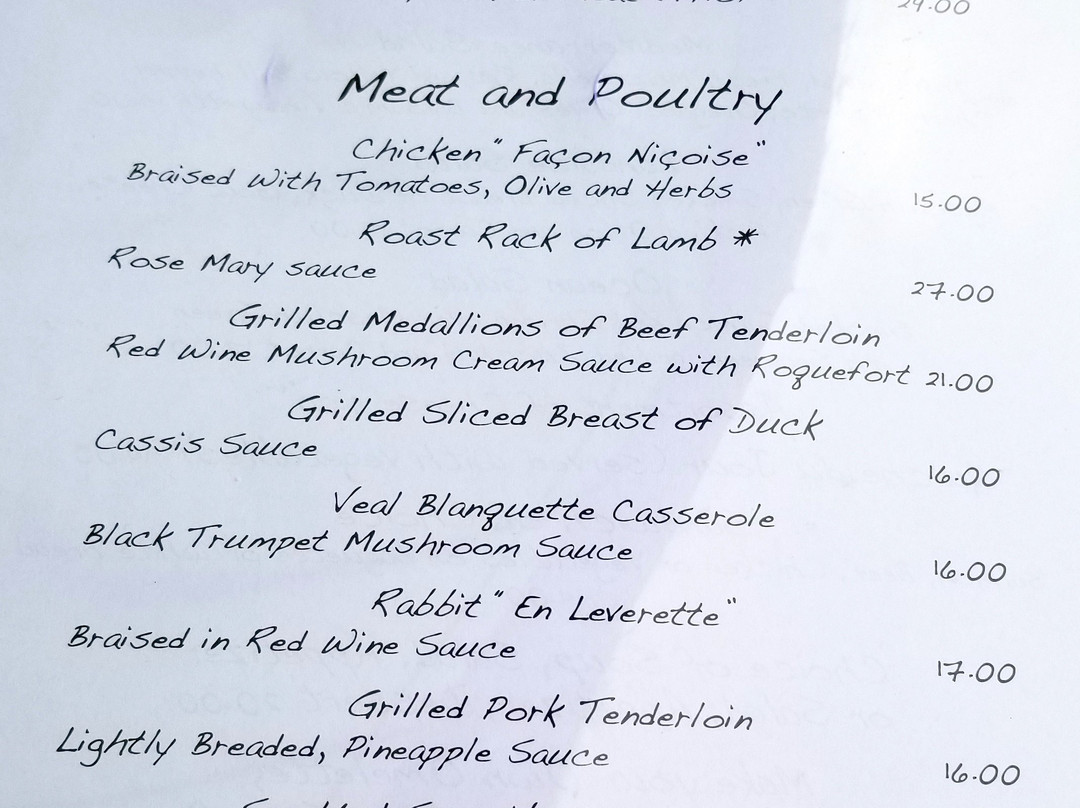 24.00
Meat and Poultry
Chicken " Façon Niçoise "
Braised With Tomatoes, Olive and Herbs 15.00
Roast Rack of Lamb *
Rose Mary sauce 27.00
Grilled Medallions of Beef Tenderloin
Red Wine Mushroom Cream Sauce with Roquefort 21.00
Grilled Sliced Breast of Duck
Cassis Sauce 16.00
Veal Blanquette Casserole
Black Trumpet Mushroom Sauce 16.00
Rabbit " En Leverette "
Braised in Red Wine Sauce 17.00
Grilled Pork Tenderloin
Lightly Breaded, Pineapple Sauce 16.00